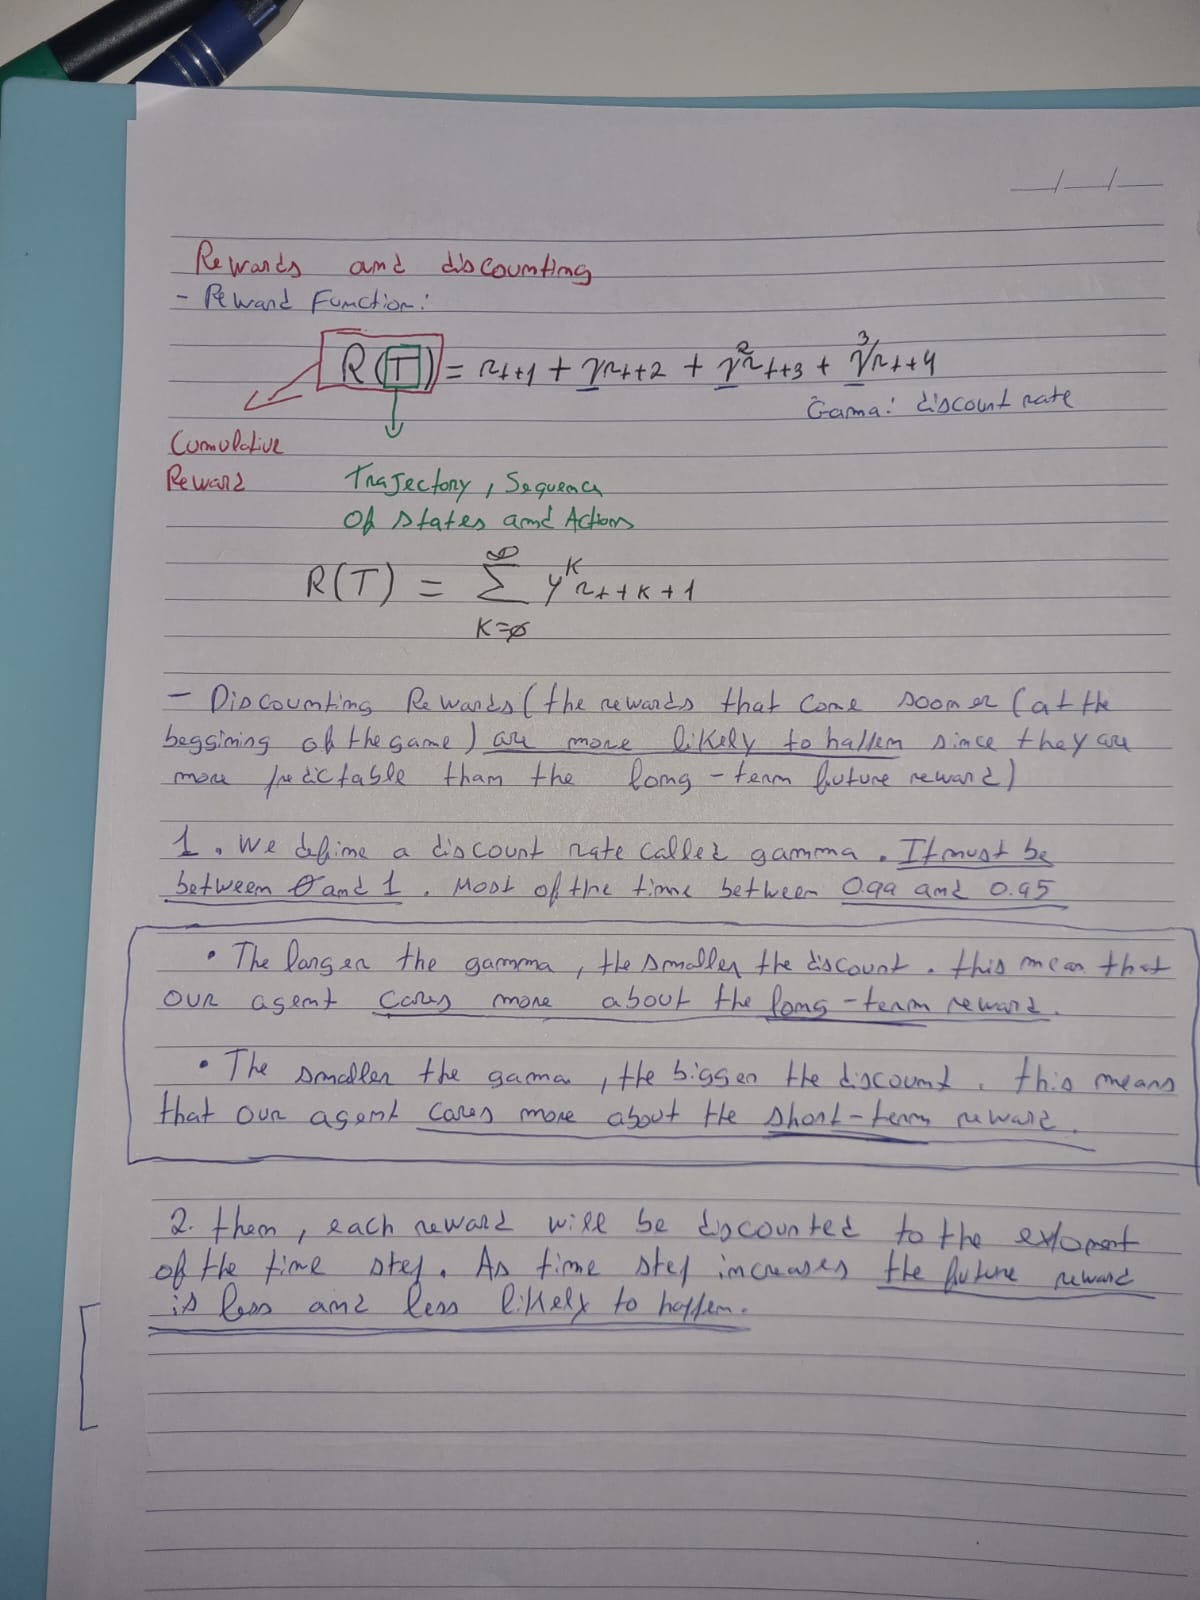 Rewards and discounting
- Reward Function:
R(T) = rt+1 + γrt+2 + γ²rt+3 + γ³rt+4
Gama: discount rate
Cumulative
Reward
Trajectory, Sequence
Of states and Actions
R(T) = ∑ γᴷ rt+K+1
∞
K=0
- Discounting Rewards (the rewards that come sooner (at the
beggining of the game) are more likely to happen since they are
more predictable than the long-term future reward)
1. We define a discount rate called gamma. It must be
between 0 and 1. Most of the time between 0.99 and 0.95
• The larger the gamma, the smaller the discount. this mean that
our agent cares more about the long-term reward.
• The smaller the gama, the bigger the discount. this means
that our agent cares more about the short-term reward.
2. then, each reward will be discounted to the exponent
of the time step. As time step increases the future reward
is less and less likely to happen.